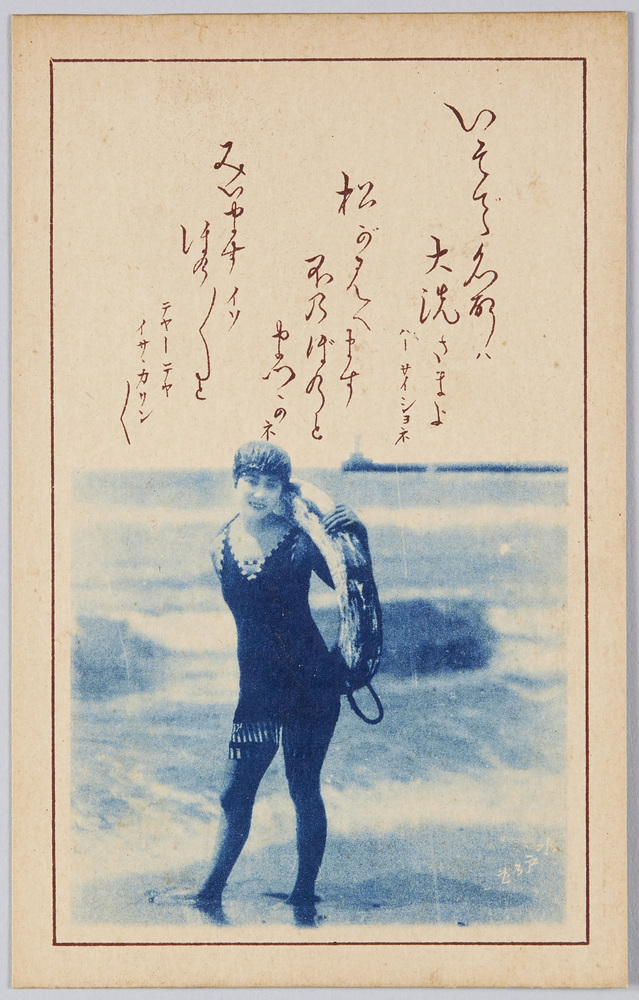 いそで名所ハ
大洗さまよ
ハーサイショネ
松が見へます
ほのぼのと
まつがネ
みいますイソ
ほの〱と
テヤーテヤ
イサヽカリン
〱